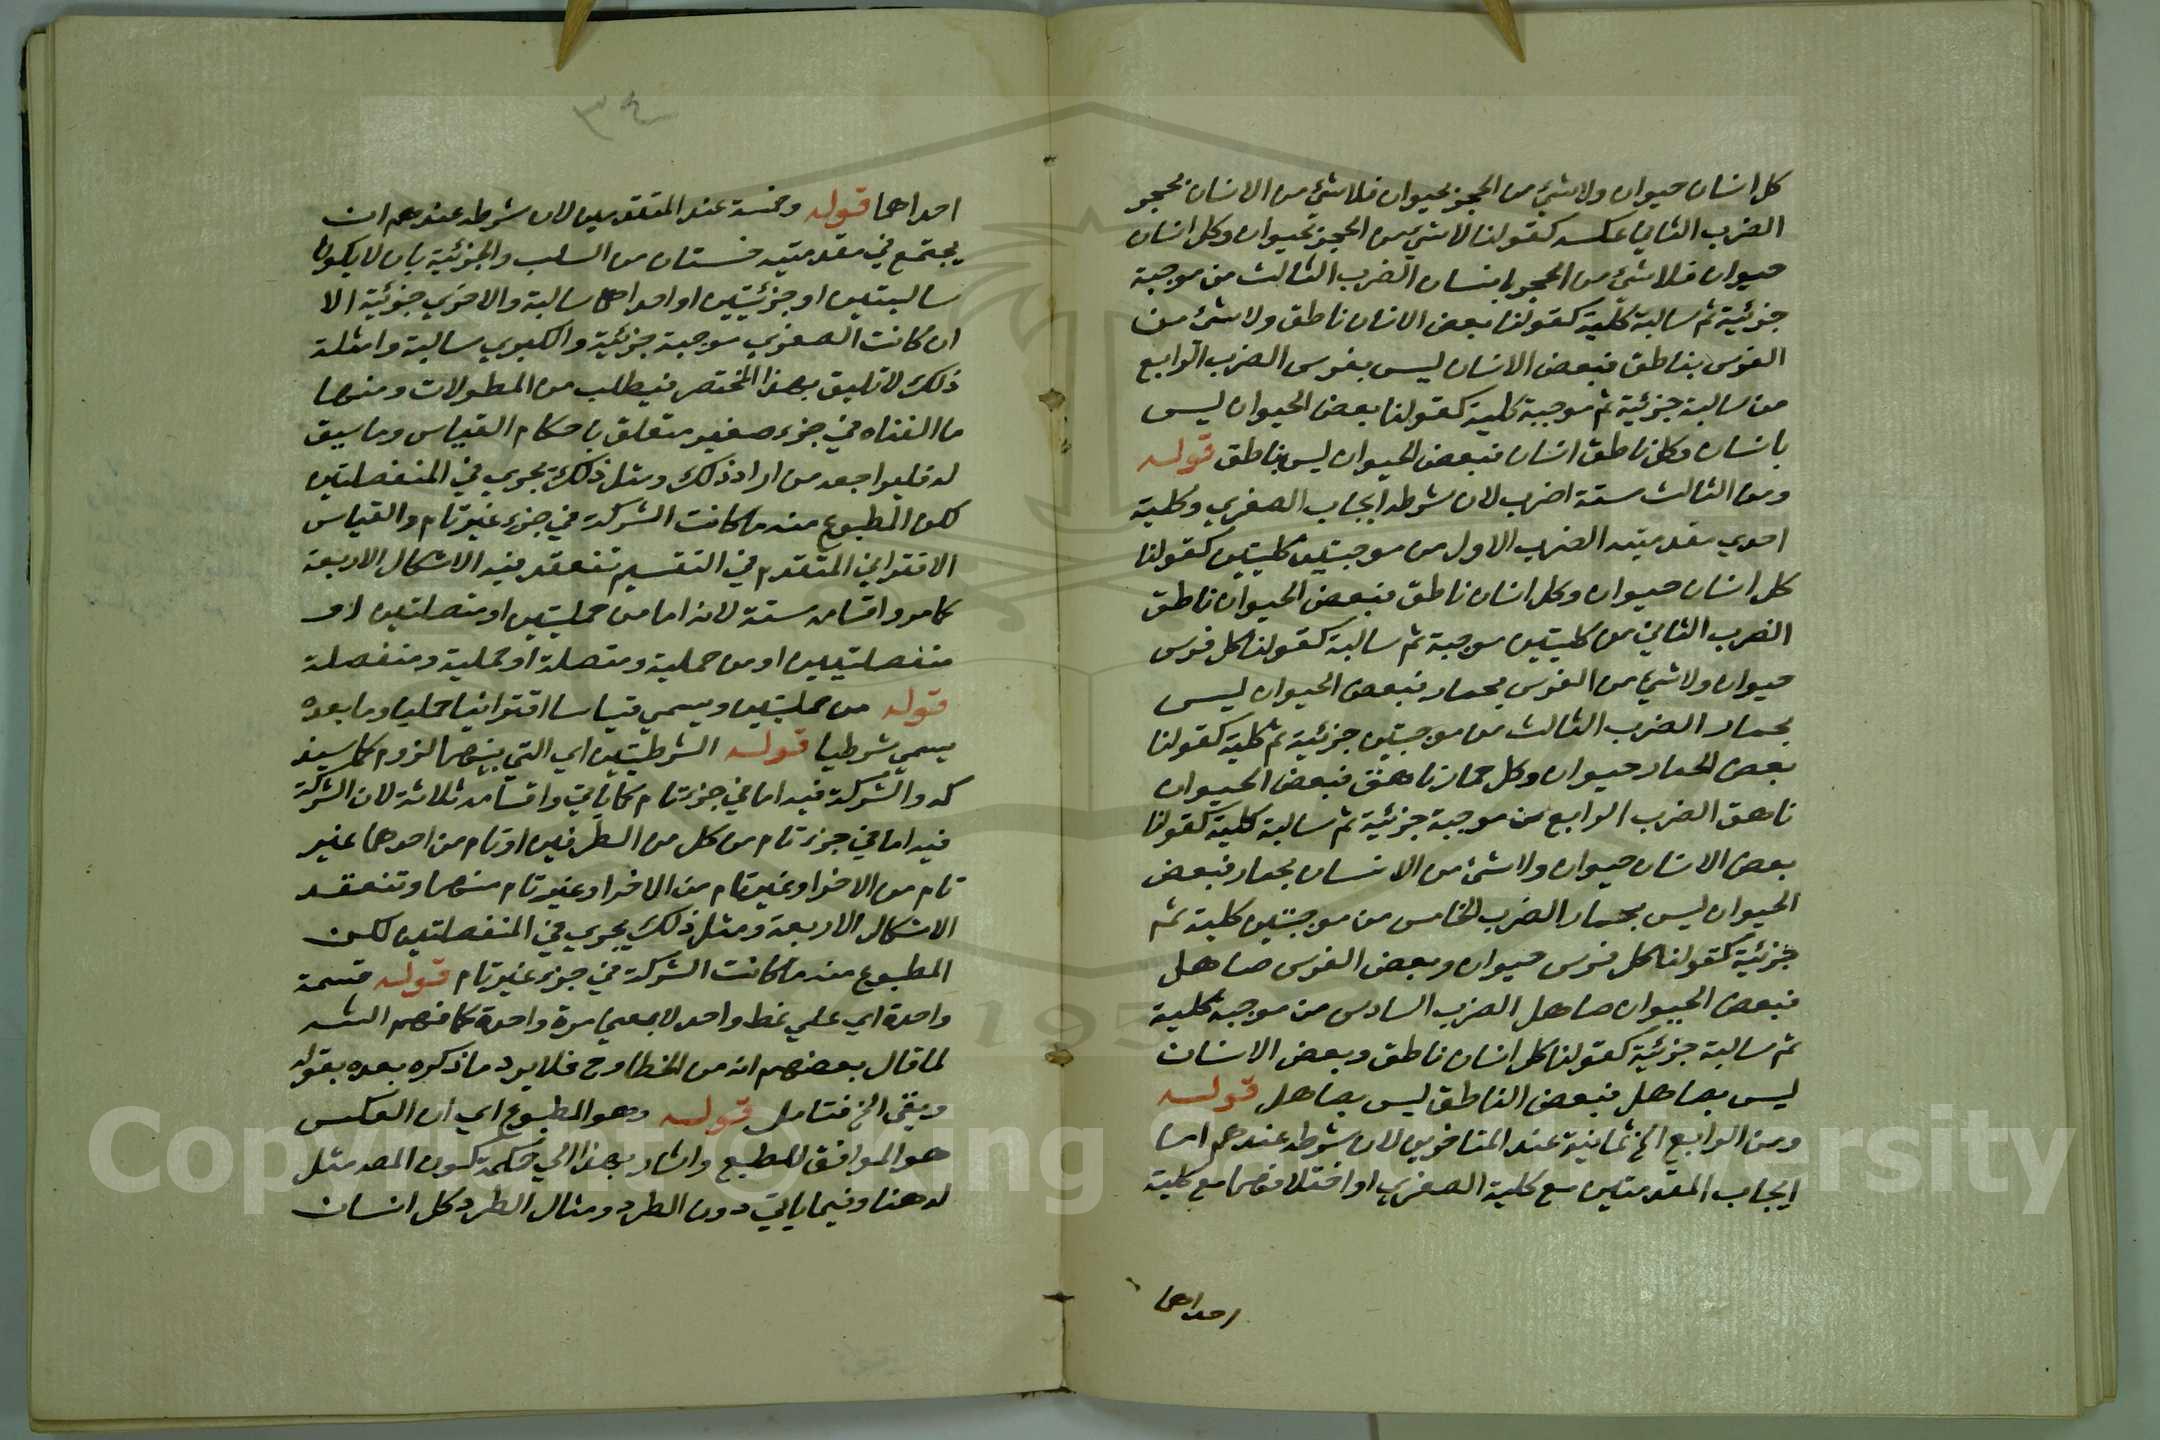 كل انسان حيوان ولا شئ من الحجر بحيوان فلا شئ من الانسان بحجر
الضرب الثاني عكسه كقولنا لا شئ من الحجر بحيوان وكل انسان
حيوان فلا شئ من الحجر بانسان الضرب الثالث من موجبة
جزئية ثم سالبة كلية كقولنا بعض الانسان ناطق ولا شئ من
الفرس بناطق فبعض الانسان ليس بفرس الضرب الرابع
من سالبة جزئية ثم موجبة كلية كقولنا بعض الحيوان ليس
بانسان وكل ناطق انسان فبعض الحيوان ليس بناطق قوله
ومن الثالث ستة اضرب لان شرطه ايجاب الصغري وكلية
احدي مقدمتيه الضرب الاول من موجبتين كليتين كقولنا
كل انسان حيوان وكل انسان ناطق فبعض الحيوان ناطق
الضرب الثاني من كليتين موجبة ثم سالبة كقولنا كل فرس
حيوان ولا شئ من الفرس بحمار فبعض الحيوان ليس
بحمار الضرب الثالث من موجبتين جزئية ثم كلية كقولنا
بعض الحمار حيوان وكل حمار ناهق فبعض الحيوان
ناهق الضرب الرابع من موجبة جزئية ثم سالبة كلية كقولنا
بعض الانسان حيوان ولا شئ من الانسان بحمار فبعض
الحيوان ليس بحمار الضرب الخامس من موجبتين كلية ثم
جزئية كقولنا كل فرس حيوان وبعض الفرس صاهل
فبعض الحيوان صاهل الضرب السادس من موجبة كلية
ثم سالبة جزئية كقولنا كل انسان ناطق وبعض الانسان
ليس بصاهل فبعض الناطق ليس بصاهل قوله
ومن الرابع الخ ثمانية عند المتاخرين لان شرطه عندهم اما
ايجاب المقدمتين مع كلية الصغري او اختلافهما مع كلية
احداهما
٣٤
احداهما قوله وخمسة عند المتقدمين لان شرطه عندهم ان
يجتمع في مقدمتيه خستان من السلب والجزئية بان لا يكونا
سالبتين او جزئيتين او احداهما سالبة والاخري جزئية الا
ان كانت الصغري موجبة جزئية والكبري سالبة وامثلة
ذلك لا تليق بهذا المختصر فيطلب من المطولات ومنها
ما الفناه في جزء صغير متعلق باحكام القياس وما سيق
له فليراجعه من اراد ذلك ومثل ذلك يجري في المنفصلتين
لكن المطبوع منه ما كانت الشركة في جزء غير تام والقياس
الاقتراني المتقدم في التقسيم تنعقد فيه الاشكال الاربعة
كما مر واقسامه ستة لانه اما من حمليتين او متصلتين او
منفصلتيين او من حملية ومتصلة او حملية ومنفصلة
قوله من حمليتين ويسمي قياسا اقترانيا حمليا وما بعده
يسمي شرطيا قوله الشرطيتين اي التي بينهما لزوم كما سيذ
كره والشركة فيه اما في جزء تام كما ياتي واقسامه ثلاثة لان الشركة
فيه اما في جزء تام من كل من الطرفين او تام من احدهما غير
تام من الاخر او غير تام من الاخر او غير تام منهما وتنعقد
الاشكال الاربعة ومثل ذلك يجري في المنفصلتين لكن
المطبوع منه ما كانت الشركة في جزء غير تام قوله قسمة
واحدة اي علي نمط واحد لا بمعني مرة واحدة كما فهم الشه
لما قال بعضهم انه من الخطا وح فلا يرد ما ذكره بعده بقوله
وبقي الخ فتامل قوله وهو المطبوع اي ان العكس
هو الموافق للطبع واشار بهذا الي حكمة كون المصه مثل
له هنا وفيما ياتي دون الطرد ومثال الطرد كل انسان